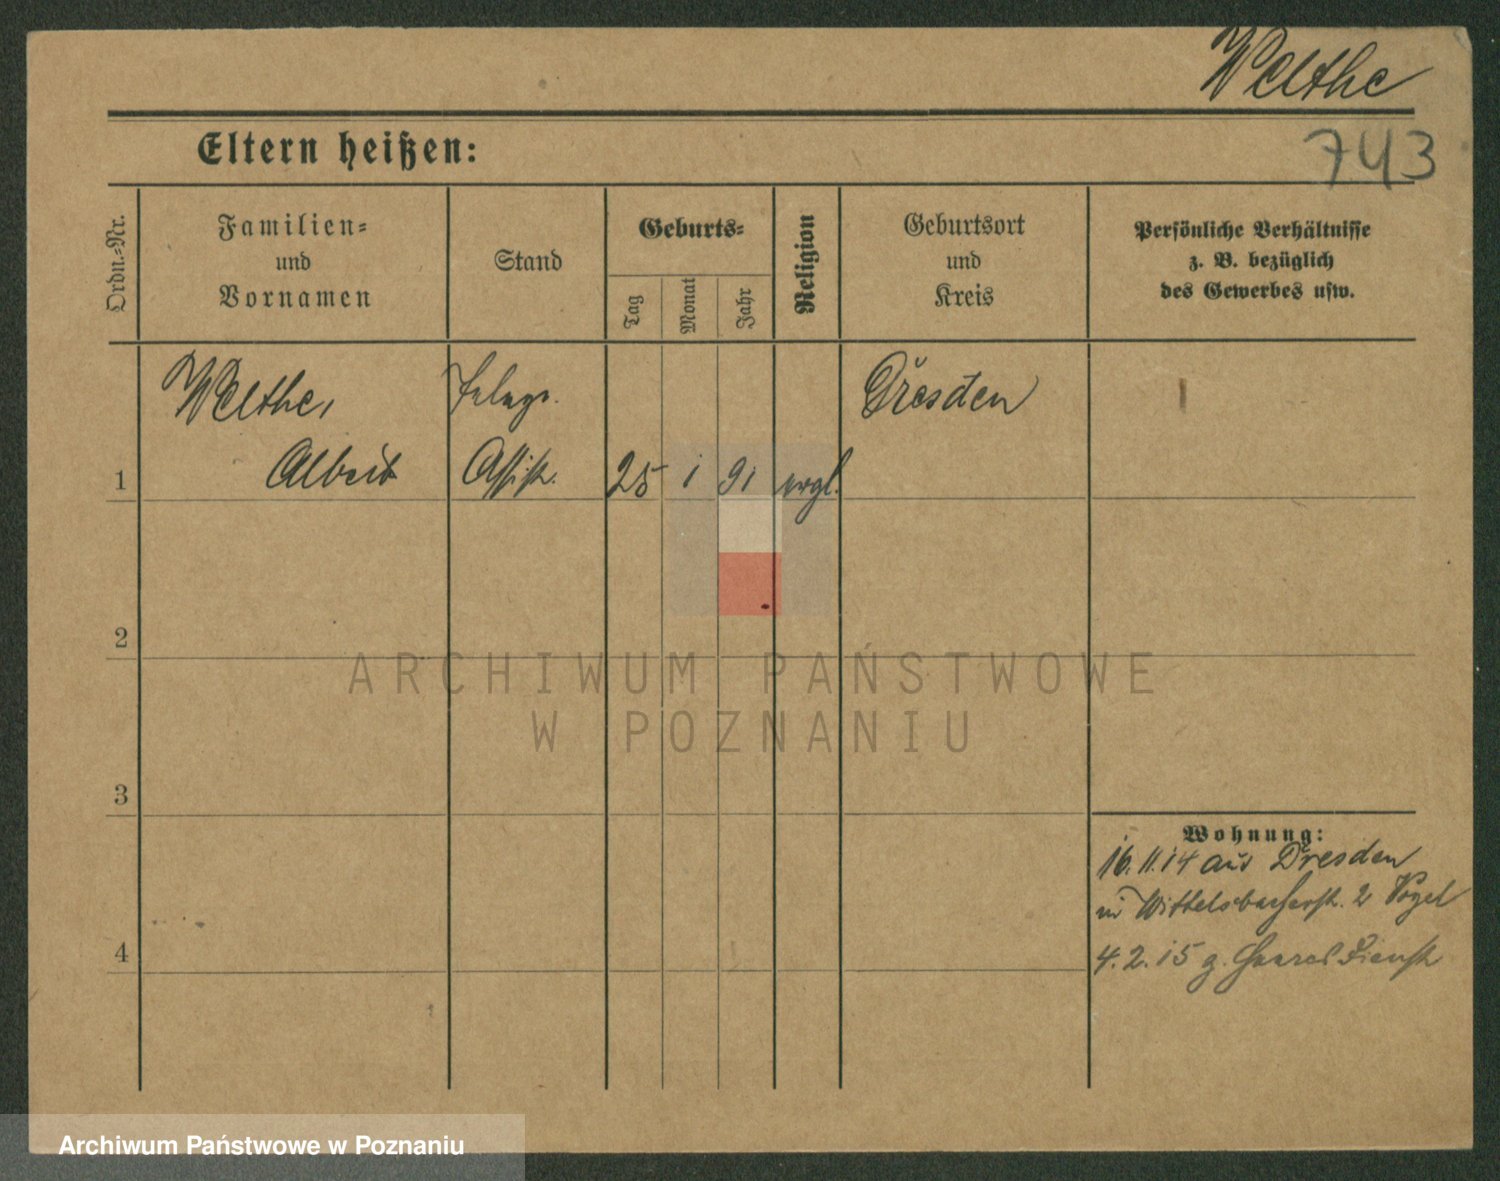 Welthe
743
Eltern heißen:
Ordn.-Nr.
Familien-
und
Vornamen
Stand
Geburts-
Tag
Monat
Jahr
Religion
Geburtsort
und
Kreis
Persönliche Verhältnisse
z. B. bezüglich
des Gewerbes usw.
Welthe, Telegr. Dresden
1 Albert Assist. 25 1 91 evgl.
2
3
4
Wohnung:
16.11.14 aus Dresden
Wittelsbacherstr. 2 Vogel
4.2.15 z. Heeresdienst
ARCHIWUM PAŃSTWOWE
W POZNANIU
Archiwum Państwowe w Poznaniu